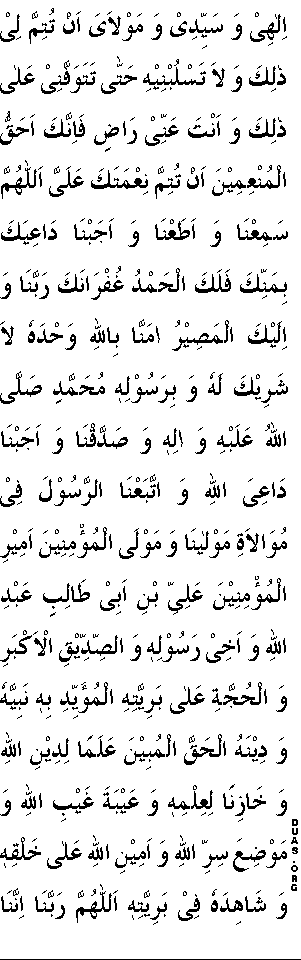 اِلٰهِىْ وَ سَيِّدِىْ وَ مَوْلَاىَ اَنْ تُتِمَّ لِىْ
ذٰلِكَ وَ لاَ تَسْلُبْنِيْهِ حَتّٰى تَتَوَفَّنِىْ عَلٰى
ذٰلِكَ وَ اَنْتَ عَنِّىْ رَاضٍ فَاِنَّكَ اَحَقُّ
الْمُنْعِمِيْنَ اَنْ تُتِمَّ نِعْمَتَكَ عَلَىَّ اَللّٰهُمَّ
سَمِعْنَا وَ اَطَعْنَا وَ اَجَبْنَا دَاعِيَكَ
بِمَنِّكَ فَلَكَ الْحَمْدُ غُفْرَانَكَ رَبَّنَا وَ
اِلَيْكَ الْمَصِيْرُ اٰمَنَّا بِاللهِ وَحْدَهٗ لاَ
شَرِيْكَ لَهٗ وَ بِرَسُوْلِهٖ مُحَمَّدٍ صَلَّى
اللهُ عَلَيْهِ وَ اٰلِهٖ وَ صَدَّقْنَا وَ اَجَبْنَا
دَاعِىَ اللهِ وَ اتَّبَعْنَا الرَّسُوْلَ فِىْ
مُوَالاَةِ مَوْلٰينَا وَ مَوْلَى الْمُؤْمِنِيْنَ اَمِيْرِ
الْمُؤْمِنِيْنَ عَلِىِّ بْنِ اَبِىْ طَالِبٍ عَبْدِ
اللهِ وَ اَخِىْ رَسُوْلِهٖ وَ الصِّدِّيْقِ الْاَكْبَرِ
وَ الْحُجَّةِ عَلٰى بَرِيَّتِهِ الْمُؤَيِّدِ بِهٖ نَبِيَّهٗ
وَ دِيْنَهُ الْحَقَّ الْمُبِيْنَ عَلَمًا لِدِيْنِ اللهِ
وَ خَازِنًا لِعِلْمِهٖ وَ عَيْبَةَ غَيْبِ اللهِ وَ
مَوْضِعَ سِرِّ اللهِ وَ اَمِيْنِ اللهِ عَلٰى خَلْقِهٖ
وَ شَاهِدَهٗ فِىْ بَرِيَّتِهٖ اَللّٰهُمَّ رَبَّنَا اِنَّنَا
DUAS.ORG